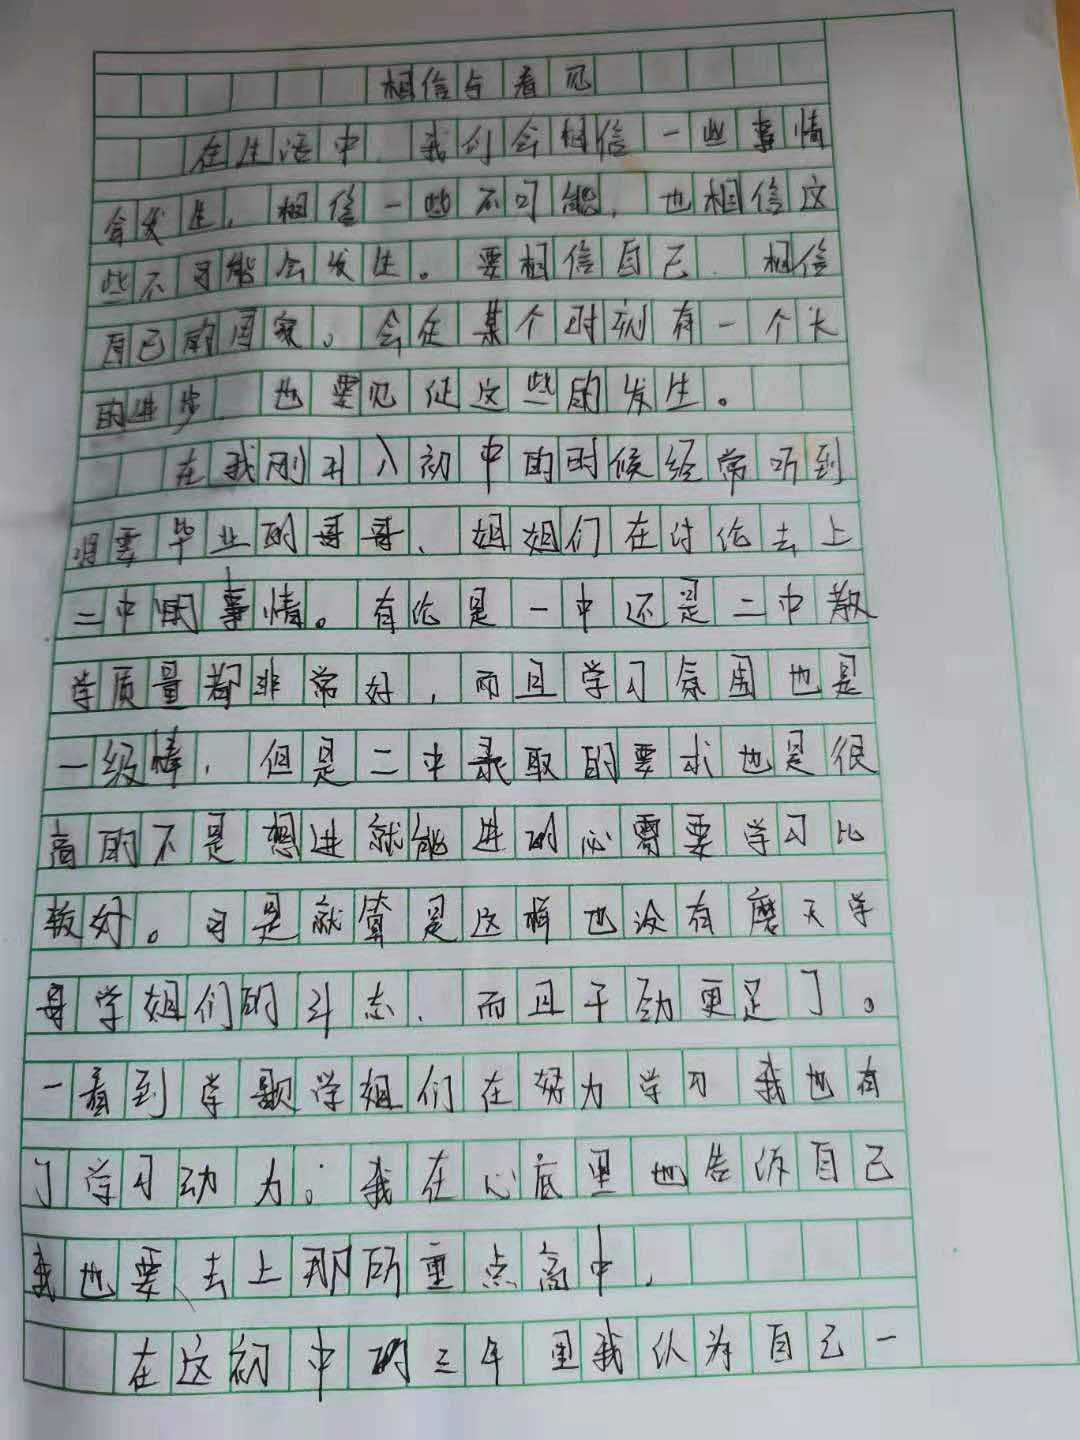 相信与看见
在生活中,我们会相信一些事情
会发生,相信一些不可能,也相信这
些不可能会发生。要相信自己,相信
自己的国家。会在某个时刻有一个大
的进步,也要见证这些的发生。
在我刚升入初中的时候经常听到
将要毕业的哥哥、姐姐们在讨论去上
二中的事情。有论是一中还是二中教
学质量都非常好,而且学习氛围也是
一级棒,但是二中录取的要求也是很
高的不是想进就能进的必需要学习比
较好。可是就算是这样也没有磨灭学
哥学姐们的斗志,而且干劲更足了。
一看到学歌学姐们在努力学习 我也有
了学习动力。我在心底里也告诉自己
我也要、去上那所重点高中,
在这初中的三年里我认为自己一